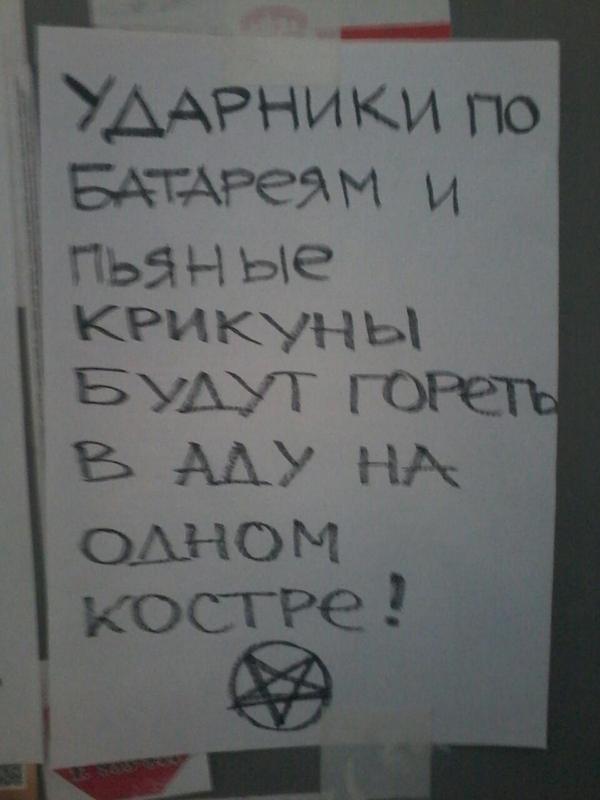 УДАРНИКИ ПО
БАТАРЕЯМ И
ПЬЯНЫЕ
КРИКУНЫ
БУДУТ ГОРЕТЬ
В АДУ НА
ОДНОМ
КОСТРЕ!